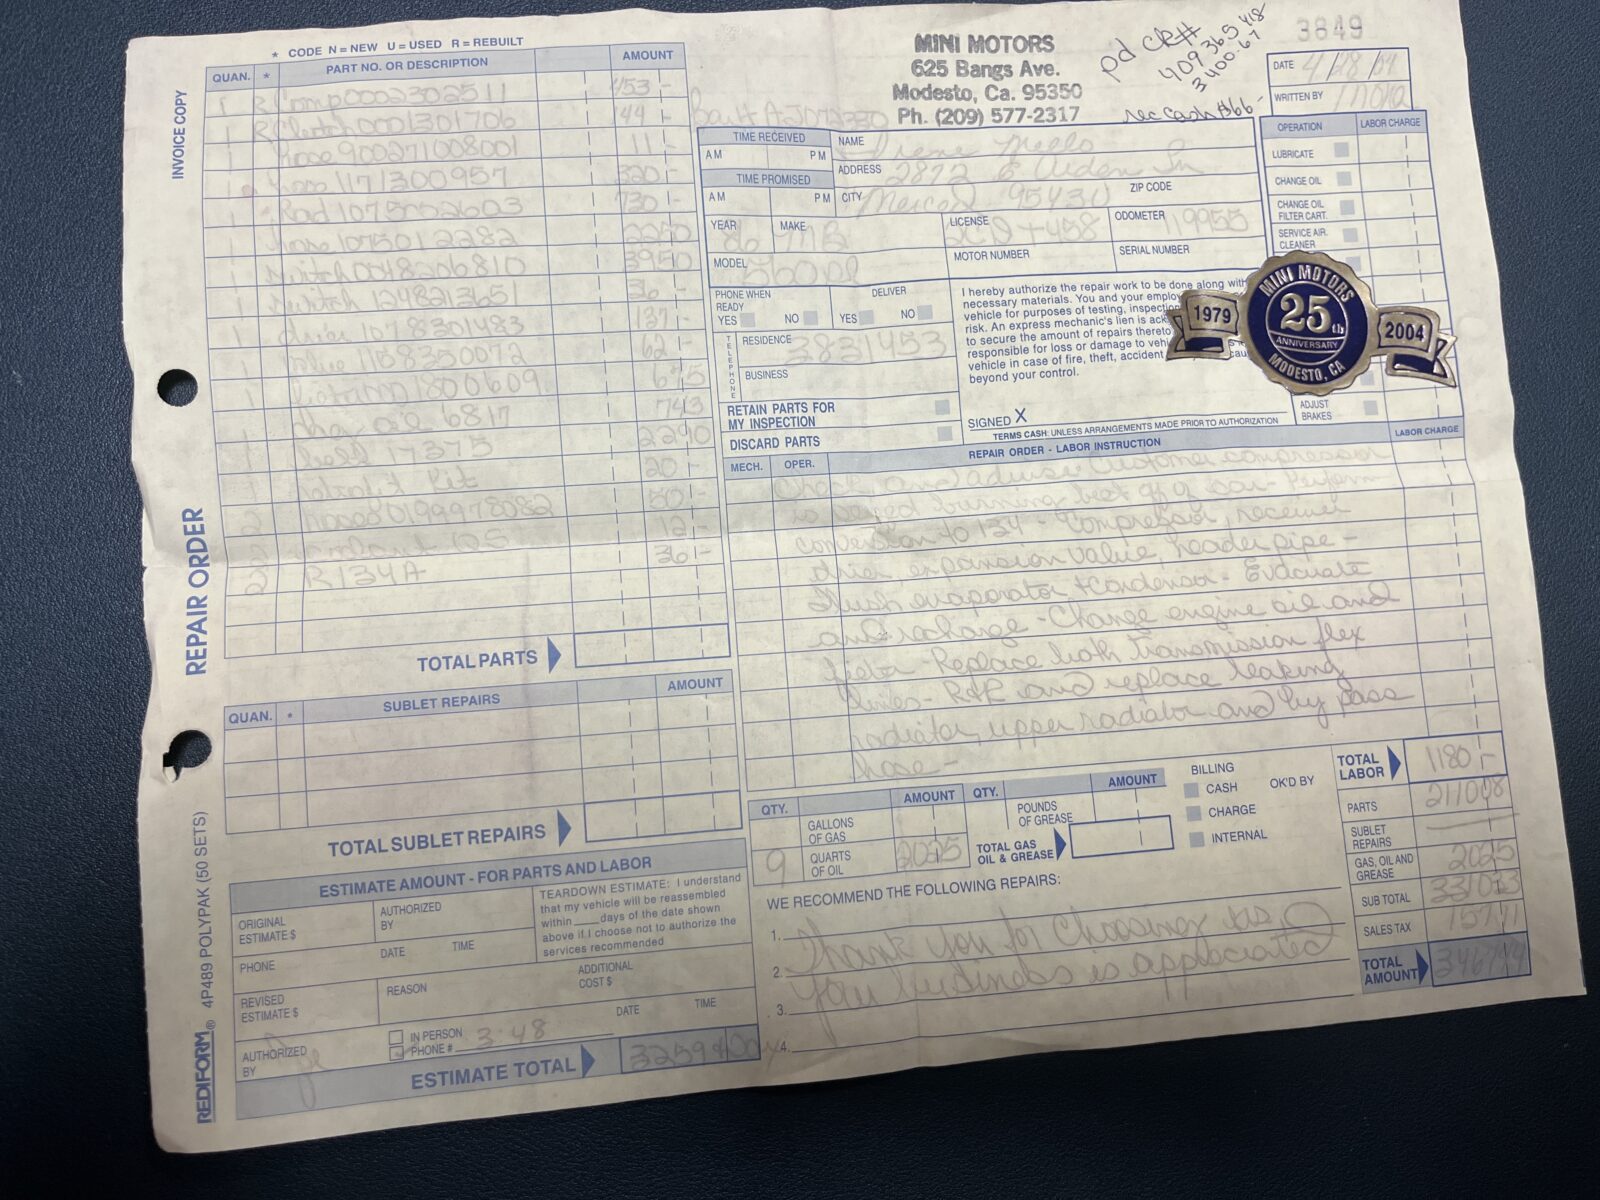 * CODE N = NEW U = USED R = REBUILT
QUAN. * PART NO. OR DESCRIPTION AMOUNT
1 R Comp0002302511 453 -
1 R 0001301706 144 -
1 hose 11 -
1 hose 1171300957 320 -
1 Rad 1075002603 730 -
1 hose 1075012282 2250
1 switch 0048206810 3950
1 switch 1248213651 36 -
1 drier 137 -
1 62 -
1 1800609 675
6817 743
1 17375 2290
1 kit 20 -
2 hoses 0199978082 50 -
2 12 -
2 R134A 36 -
TOTAL PARTS
INVOICE COPY
REPAIR ORDER
REDIFORM® 4P489 POLYPAK (50 SETS)
QUAN. * SUBLET REPAIRS AMOUNT
TOTAL SUBLET REPAIRS
ESTIMATE AMOUNT - FOR PARTS AND LABOR
ORIGINAL ESTIMATE $
AUTHORIZED BY
DATE TIME
PHONE
TEARDOWN ESTIMATE: I understand
that my vehicle will be reassembled
within ____days of the date shown
above if I choose not to authorize the
services recommended
REVISED ESTIMATE $
REASON
ADDITIONAL COST $
DATE TIME
AUTHORIZED BY
IN PERSON
PHONE # 3:48
ESTIMATE TOTAL 3259
MINI MOTORS
625 Bangs Ave.
Modesto, Ca. 95350
Ph. (209) 577-2317
pd ck#
409 365 418
3400.67
rec cash $66-
3849
DATE 4/28/04
WRITTEN BY
TIME RECEIVED
AM PM
TIME PROMISED
AM PM
NAME Irene
ADDRESS 2872 E Ln
CITY Merced 95430 ZIP CODE
YEAR 86 MAKE MB
LICENSE
ODOMETER 119955
MODEL 560
MOTOR NUMBER
SERIAL NUMBER
PHONE WHEN READY
YES NO
DELIVER
YES NO
TELEPHONE
RESIDENCE 3831453
BUSINESS
RETAIN PARTS FOR
MY INSPECTION
DISCARD PARTS
I hereby authorize the repair work to be done along with
necessary materials. You and your employ
vehicle for purposes of testing, inspection
risk. An express mechanic's lien is ack
to secure the amount of repairs thereto
responsible for loss or damage to vehi
vehicle in case of fire, theft, accident
beyond your control.
SIGNED X
TERMS CASH: UNLESS ARRANGEMENTS MADE PRIOR TO AUTHORIZATION
OPERATION LABOR CHARGE
LUBRICATE
CHANGE OIL
CHANGE OIL
FILTER CART.
SERVICE AIR.
CLEANER
MINI MOTORS
1979
25th
ANNIVERSARY
2004
MODESTO, CA
ADJUST
BRAKES
MECH. OPER. REPAIR ORDER - LABOR INSTRUCTION LABOR CHARGE
Check and advise customer compressor
is burning belt off of car - Perform
conversion to 134 - Compressor, receiver
drier, expansion valve, header pipe -
Flush evaporator + Condensor - Evacuate
and recharge - Change engine oil and
filter - Replace both transmission flex
lines - R&R and replace leaking
radiator, upper radiator and by pass
hose -
QTY. AMOUNT QTY. AMOUNT
GALLONS OF GAS
POUNDS OF GREASE
9 QUARTS OF OIL 2025
TOTAL GAS
OIL & GREASE
BILLING
CASH
CHARGE
INTERNAL
OK'D BY
TOTAL LABOR 1180 -
PARTS 211008
SUBLET REPAIRS
GAS, OIL AND GREASE 2025
SUB TOTAL 331033
SALES TAX 15711
TOTAL AMOUNT 346744
WE RECOMMEND THE FOLLOWING REPAIRS:
1. Thank you for choosing us
2. Your business is appreciated
3.
4.